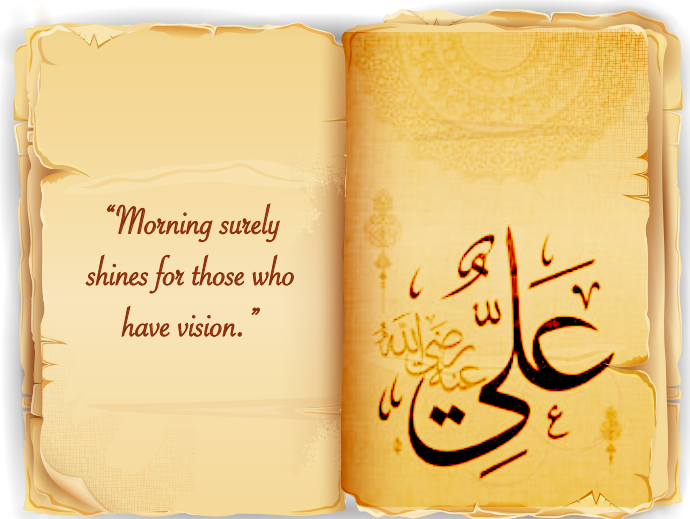 “Morning surely
shines for those who
have vision.”
عَلِيّ
رضي الله عنه